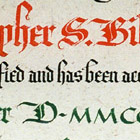 pher S. Bi
fied and has been acc
r D·MMC